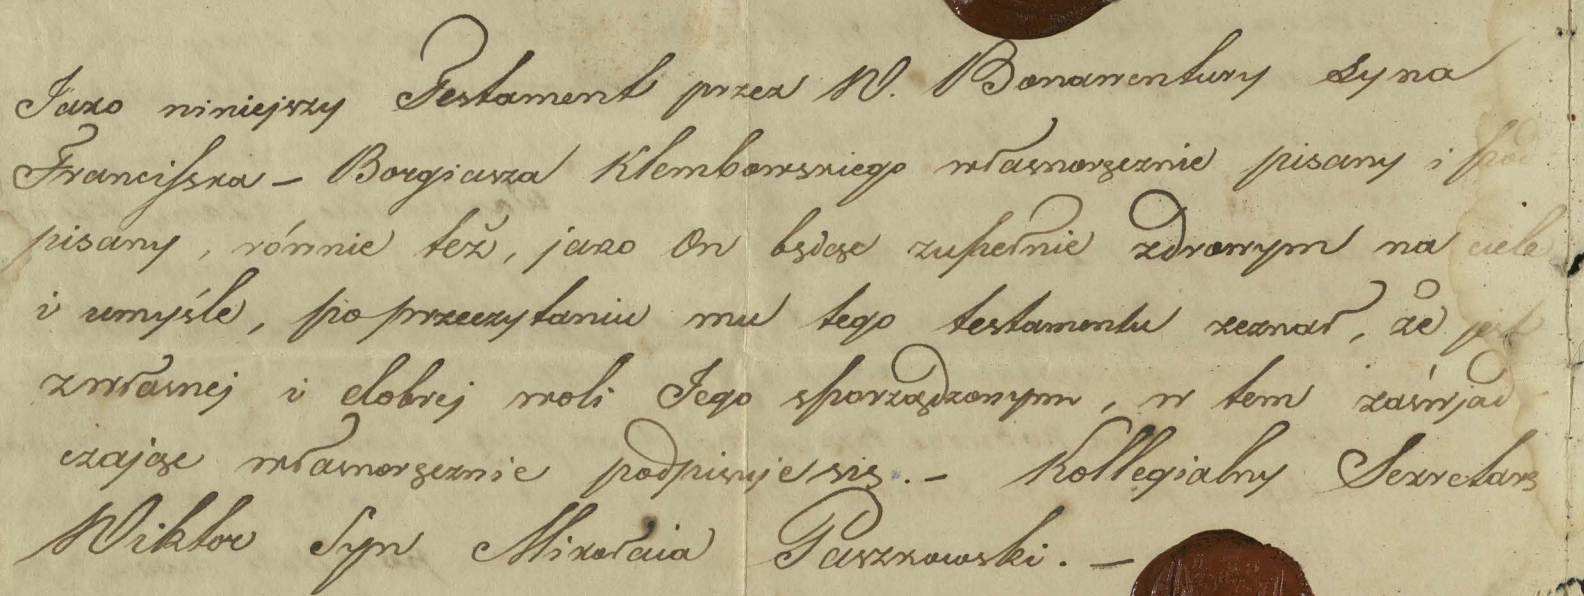 Jako niniejszy Testament przez W. Bonawentury Syna
Franciszka – Borgiasza Klembowskiego własnoręcznie pisany i pod
pisany, równie też, jako On będąc zupełnie zdrowym na ciele
i umyśle, po przeczytaniu mu tego testamentu zeznał, że jest
z własnej i dobrej woli Jego sporządzonym, w tem zaświad
czając własnoręcznie podpisuje się. – Kollegialny Sekretarz
Wiktor Syn Mikołaia Paszkowski. –